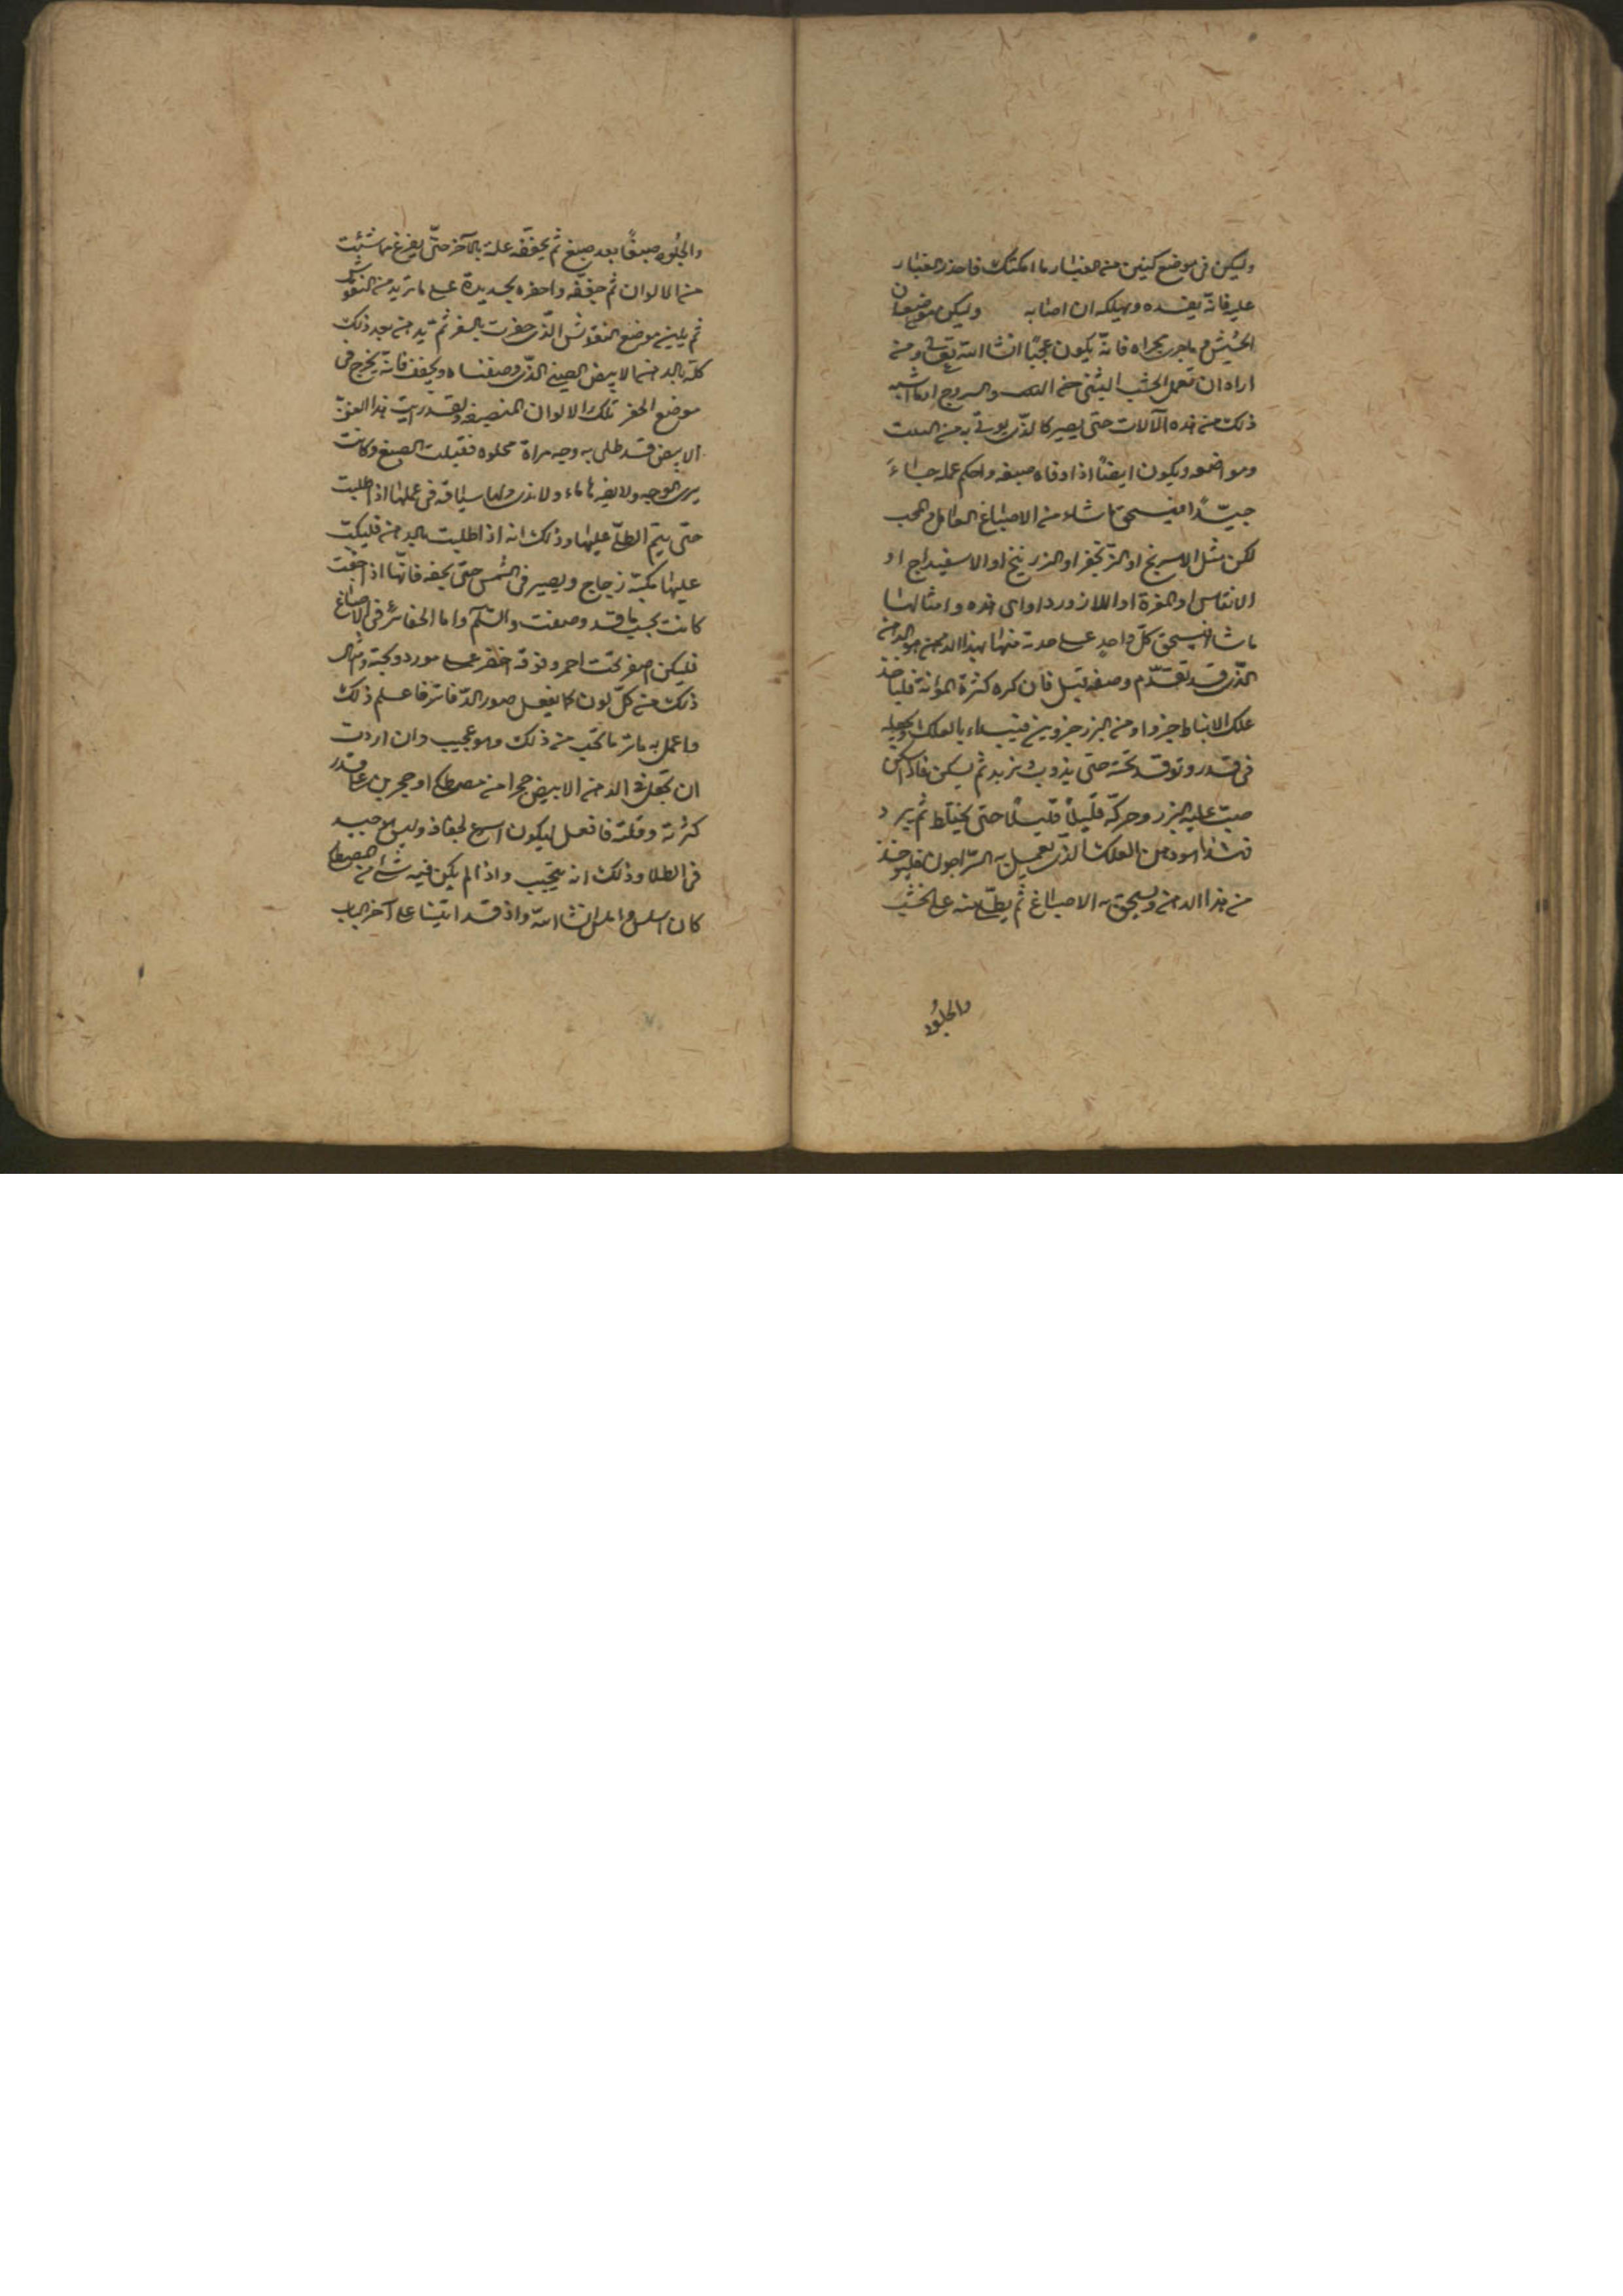 وليكن في موضع كنين من الغبار ما امكنك فاحذر الغبار
عليه فانه يفسده ويهلكه ان اصابه وليكن موضعها
الخيش وما جرى مجراه فانه يكون عجبًا انشا الله تعالى ومن
اراد ان يعمل الخشب الشي من والسروج او ما اشبه
ذلك من هذه الآلات حتى يصير كالذي يوتى به من البيت
ومواضعه ويكون ايضًا اذا وفاه صبغه واحكم عمله جاء
جيّدًا فيسحق ما شاء من الاصباغ
لكن مثل الاسرنج او الزنجفر او الزرنيخ او الاسفيداج او
الانقاس او المغرة او اللازورد او اي هذه وامثالها
ما شا فيسحق كلّ واحدٍ على حدته منها بهذا الدهن هو الدهن
الذي قد تقدّم وصفه قبل فان كره كثرة المؤنة فلياخذ
علك الانباط جزوا ومن البزر جزوين فيبدء بالعلك ويجعله
في قدر ويوقد تحته حتى يذوب ويزبد ثم يسكن فاذا سكن
صبّ عليه البزر وحركه قليلًا قليلًا حتى يختلط ثم يبرد
فهذا هو دهن العلك الذي يعمل به السراجون فليوخذ
من هذا الدهن ويسحق به الاصباغ ثم يطلى منه على الخشب
والجلود
والجلود صبغًا بعد صبغ ثم يجففه علة بالآخر حتى يفرغ ما شئت
من الالوان ثم جففه واحفره بحديدة على ما تريد من النقوش
ثم يلين موضع النقوش الذي حفرت بالسفر ثم يدهن بعد ذلك
كله بالدهن الابيض الصيني الذي وصفناه ويجفف فانه يخرج في
موضع الحفر تلك الالوان المنصبغة ولقد رايت هذا
الابيض قد طلي به وجه مراة مجلوه فقبلت الصبغ وكانت
يرى الوجه ولا يضرها ماء ولا ندى ولها سياقة في عملها اذا طليت
حتى يتم الطلى عليها وذلك انه اذا طليت بالدهن فليكب
عليها مكبة زجاج ويصير في الشمس حتى يجف فانها اذا جفت
كانت بحسب ما قد وصفت والسلم واما الحفائر في الاصباغ
فليكن اصفر تحت احمر وفوقه اخضر على مورد وتحته وامثال
ذلك من كلّ لون كما يفعل صور الدفاتر فاعلم ذلك
واعمل به ما تحب من ذلك وهو عجيب وان اردت
ان تجعل في الدهن الابيض حجرا من مصطكى او حجرين على قدر
كثرته وقلته فافعل ليكون اسرع لجفافه وليس جيد
في الطلا وذلك انه يتحبب واذا لم يكن فيه شي من المصطكى
كان اسلس واملس انشا الله واذ قد اتينا على آخر الباب